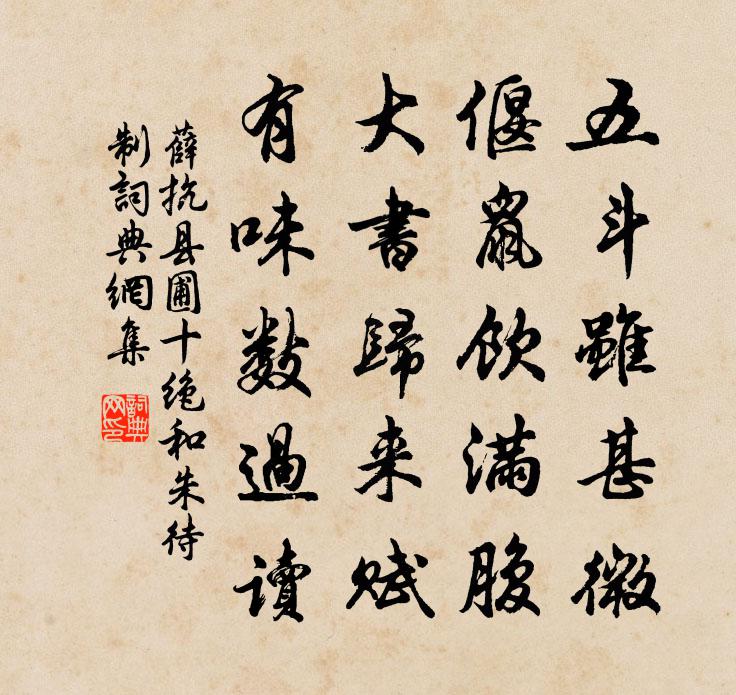 五斗雖甚微
偃鼠飲滿腹
大書歸来赋
有味数過讀
薛抗县圃十绝和朱待
制詞典網集
詞典网印